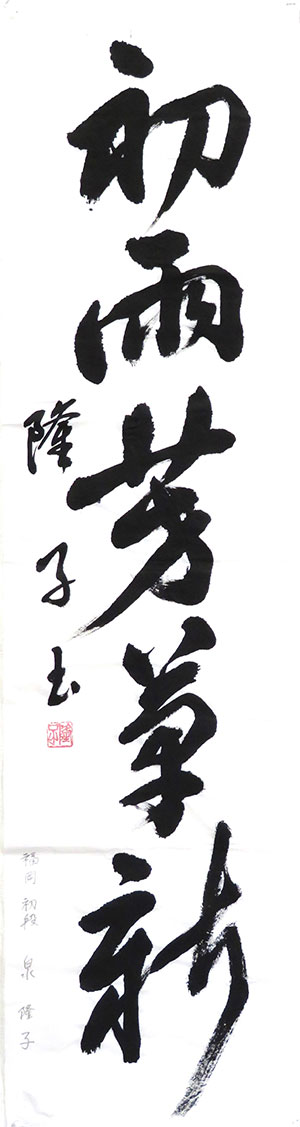 初雨芳草新
隆子書
隆子
福岡 初段 泉 隆子